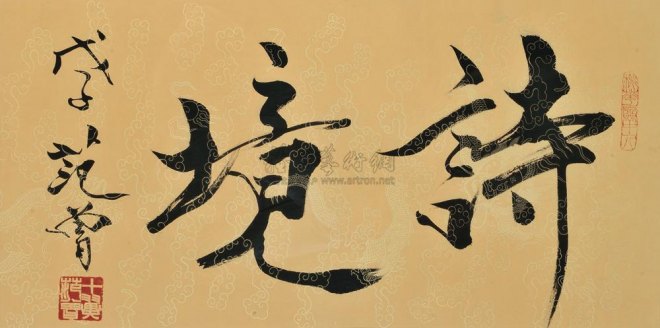 詩境
戊子范曾
雅昌藝術網
www.artron.net